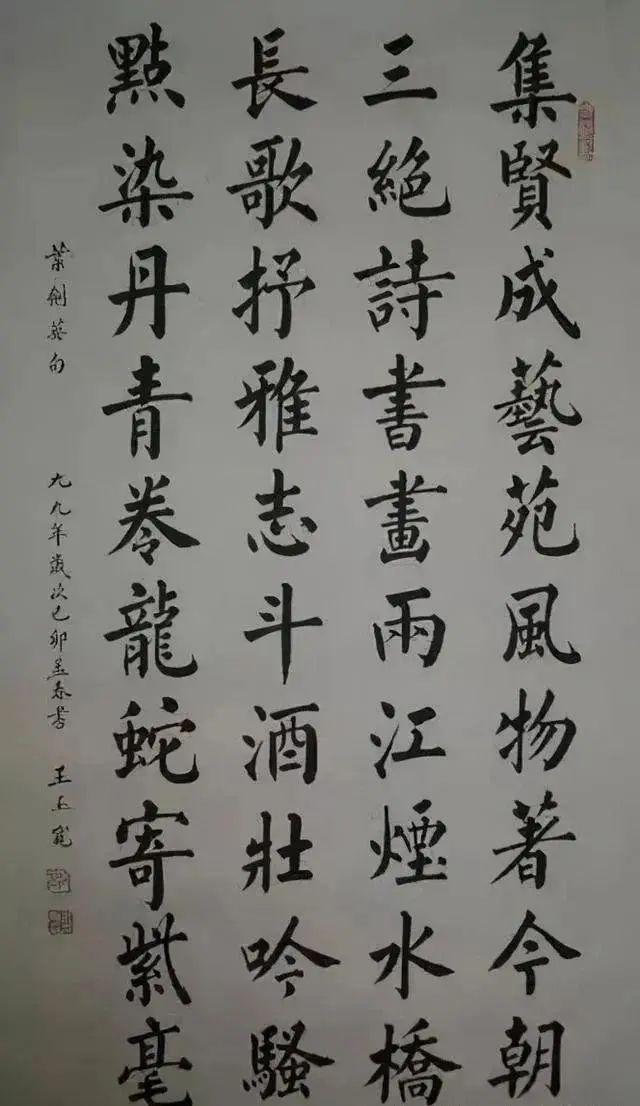 集賢成藝苑風物著今朝
三絕詩書畫兩江煙水橋
長歌抒雅志斗酒壯吟騷
點染丹青卷龍蛇寄紫毫
葉劍英句
九九年歲次己卯孟春書 王上